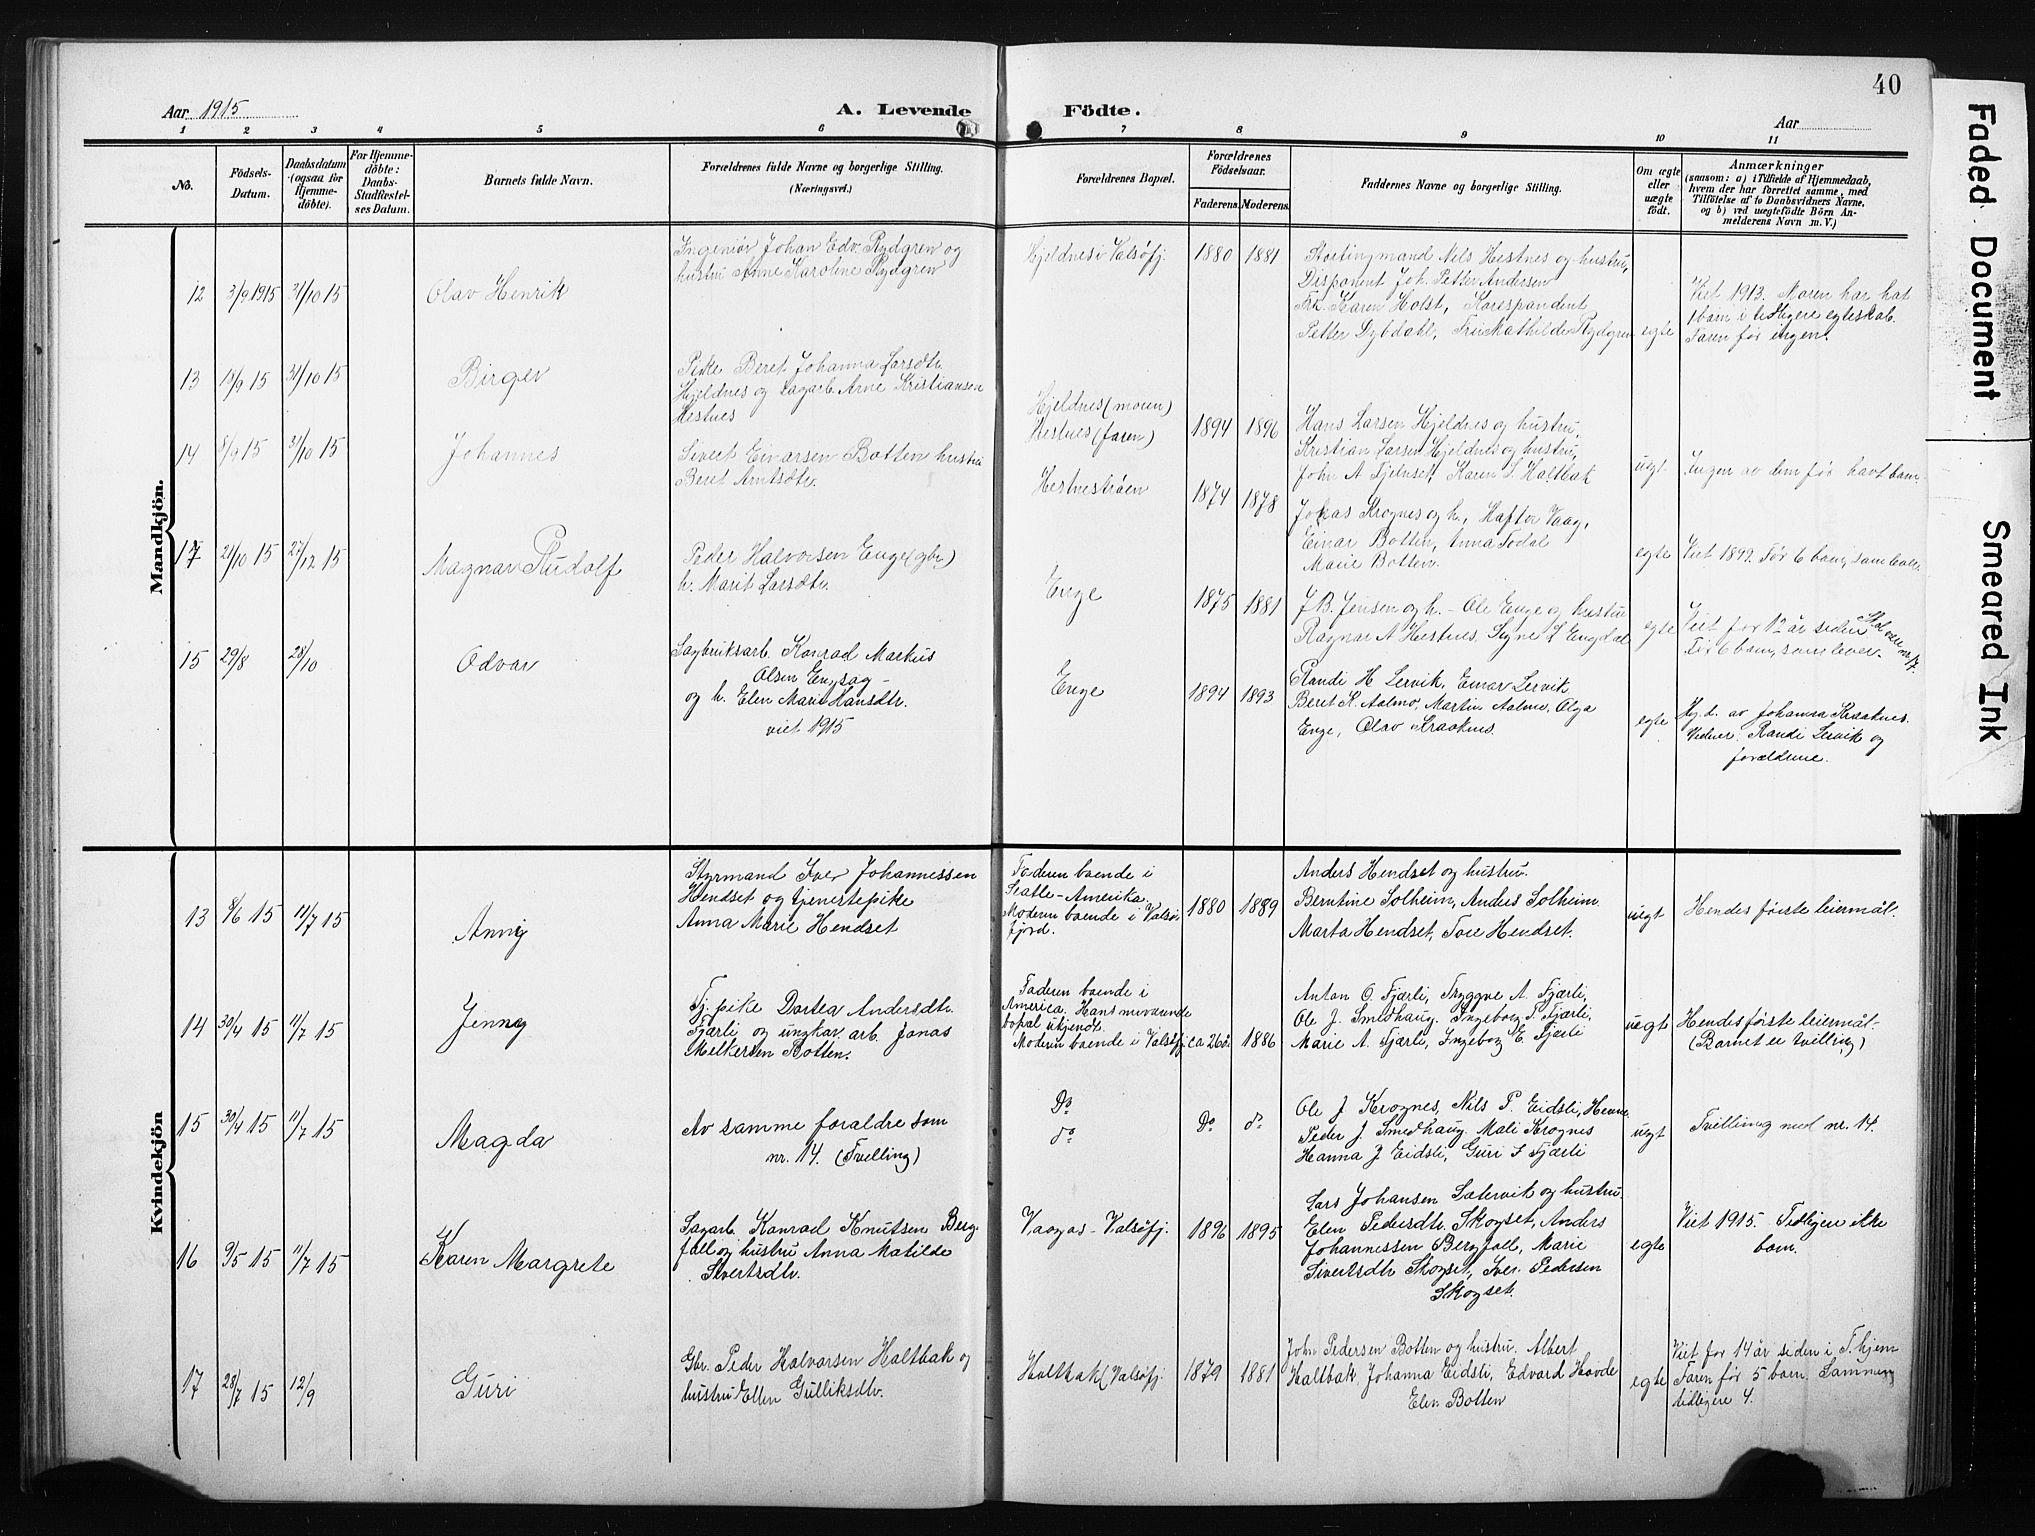 40
Aar 1915
A. Levende Födte.
Aar
1 2 3 4 5 6 7 8 9 10 11
No.
Födsels-
Datum.
Daabsdatum
(ogsaa for
Hjemme-
døbte).
For Hjemme-
döbte:
Daabs-
Stadfæstel-
ses Datum.
Barnets fulde Navn.
Forældrenes fulde Navne og borgerlige Stilling.
(Næringsvei.)
Forældrenes Bopæl.
Forældrenes
Födselsaar.
Faderens. Moderens.
Faddernes Navne og borgerlige Stilling.
Om ægte
eller
uægte
födt.
Anmærkninger
(saasom: a) i Tilfælde af Hjemmedaab,
hvem der har forrettet samme, med
Tilföielse af to Daabsvidners Navne,
og b) ved uægtefödte Börn An-
melderens Navn m. V.)
Mandkjön.
12 3/9 1915 31/10 15
Olav Henrik
Ingeniør Johan Edv. Rydgren og
hustru Anne Karoline Rydgren
Hjeldnes i Valsøfj. 1880 1881
Stortingmand Nels Hestnes og hustru,
Disponent Joh. Petter Andersen
Frk. Karen Holst, Korespondent
Petter Dybdahl, Fru Mathilde Rydgren
egte
Viet 1913. Moren har hat
1 barn i tidligere egteskab.
Faren før ingen.
13 15/9 15 31/10 15
Birger
Pike Beret Johanna Larsdtr.
Hjeldnes og sagarb. Arne Kristiansen
Hestnes
Hjeldnes (moren)
Hestnes (faren) 1894 1896
Hans Larsen Hjeldnes og hustru,
Kristian Larsen Hjeldnes og hustru,
John A Fjelnset, Karen L. Haltbak
uegt
Ingen av dem før havt barn
14 8/9 15 31/10 15
Johannes
Sivert Einarsen Botten hustru
Beret Arntsdtr.
Hestnestrøen 1874 1878
Jonas Krognes og h., Haftor Vaag,
Einar Botten, Anna Todal
Marie Botten.
egte
Viet 1899. Før 6 barn, som lever.
17 21/10 15 27/12 15
Magnar Rudolf
Peder Halvorsen Enge (gbr)
h. Marit Larsdtr.
Enge 1875 1881
J B. Jensen og h. - Ole Enge og hustru
Ragnar A Hestnes. Signe L Engdal
egte
Viet for 12 år siden
Før 6 barn, som lever.
Skal være nr. 17.
15 29/8 28/10
Odvar
Sagbruksarb. Konrad Markus
Olsen Engsag -
og h. Elen Marie Hansdtr.
viet 1915
Enge 1894 1893
Randi H Lervik, Einar Lervik
Beret K. Aalmo, Martin Aalmo, Olga
Enge, Olav Kraaknes.
egte
Hj.d. av Johanna Kraaknes.
Vidner: Randi Lervik og
forældrene.
Kvindekjön
13 8/6 15 11/7 15
Anny
Styrmand Iver Johannessen
Hendset og tjenestepike
Anna Marie Hendset
Faderen boende i
Seatle - Amerika.
Moderen boende i Valsø-
fjord.
1880 1889
Anders Hendset og hustru.
Berntine Solheim, Anders Solheim.
Marta Hendset, Tore Hendset.
uegt
Hendes første leiermål.
14 30/4 15 11/7 15
Jenny
Tj. pike Dortea Andersdtr.
Fjærli og ungkar arb. Jonas
Melkersen Botten.
Faderen boende i
America, Hans nuværende
bopæl ukjendt.
Moderen boende i Valsøfj. ca 26 å. 1886
Anton O. Fjærli, Tryggve A. Fjærli,
Ole J. Smedhaug, Ingeborg P. Fjærli,
Marie A. Fjærli, Ingeborg E. Fjærli
uegt
Hendes første leiermål -
(Barnet er tvilling)
15 30/4 15 11/7 15
Magda
Av samme foraldre som
nr. 14. (Tvelling)
Do
do
Do do
Ole J Krognes, Nils P. Eidsli, Henne
Peder J. Smedhaug. Mali Krognes
Hanna J Eidsli, Guri I Fjærli
uegt
Tvilling med nr. 14.
16 9/5 15 11/7 15
Karen Margrete
Sagarb. Konrad Knutsen Berg-
fall og hustru Anna Matilde
Sivertsdtr.
Vaagos - Valsøfj. 1896 1895
Lars Johansen Sætervik og hustru.
Elen Pedersdtr. Skogset, Anders
Johannessen Bergfall, Marie
Sivertsdtr Skogset, Iver Pedersen
Skogset.
egte
Viet 1915. Tidligere ikke
barn.
17 28/7 15 12/9
Guri
Gbr. Peder Halvorsen Haltbak og
hustru Ellen Gulliksdtr.
Haltbak (Valsøfj. 1879 1881
John Pedersen Botten og hustru. Albert
Haltbak Johanna Eidsli, Edvard Hovde
Elen Botten
egte
Viet for 14 år siden i T.hjem
Faren før 5 barn. Sammen
tidligere 4.
Faded Document
Smeared Ink